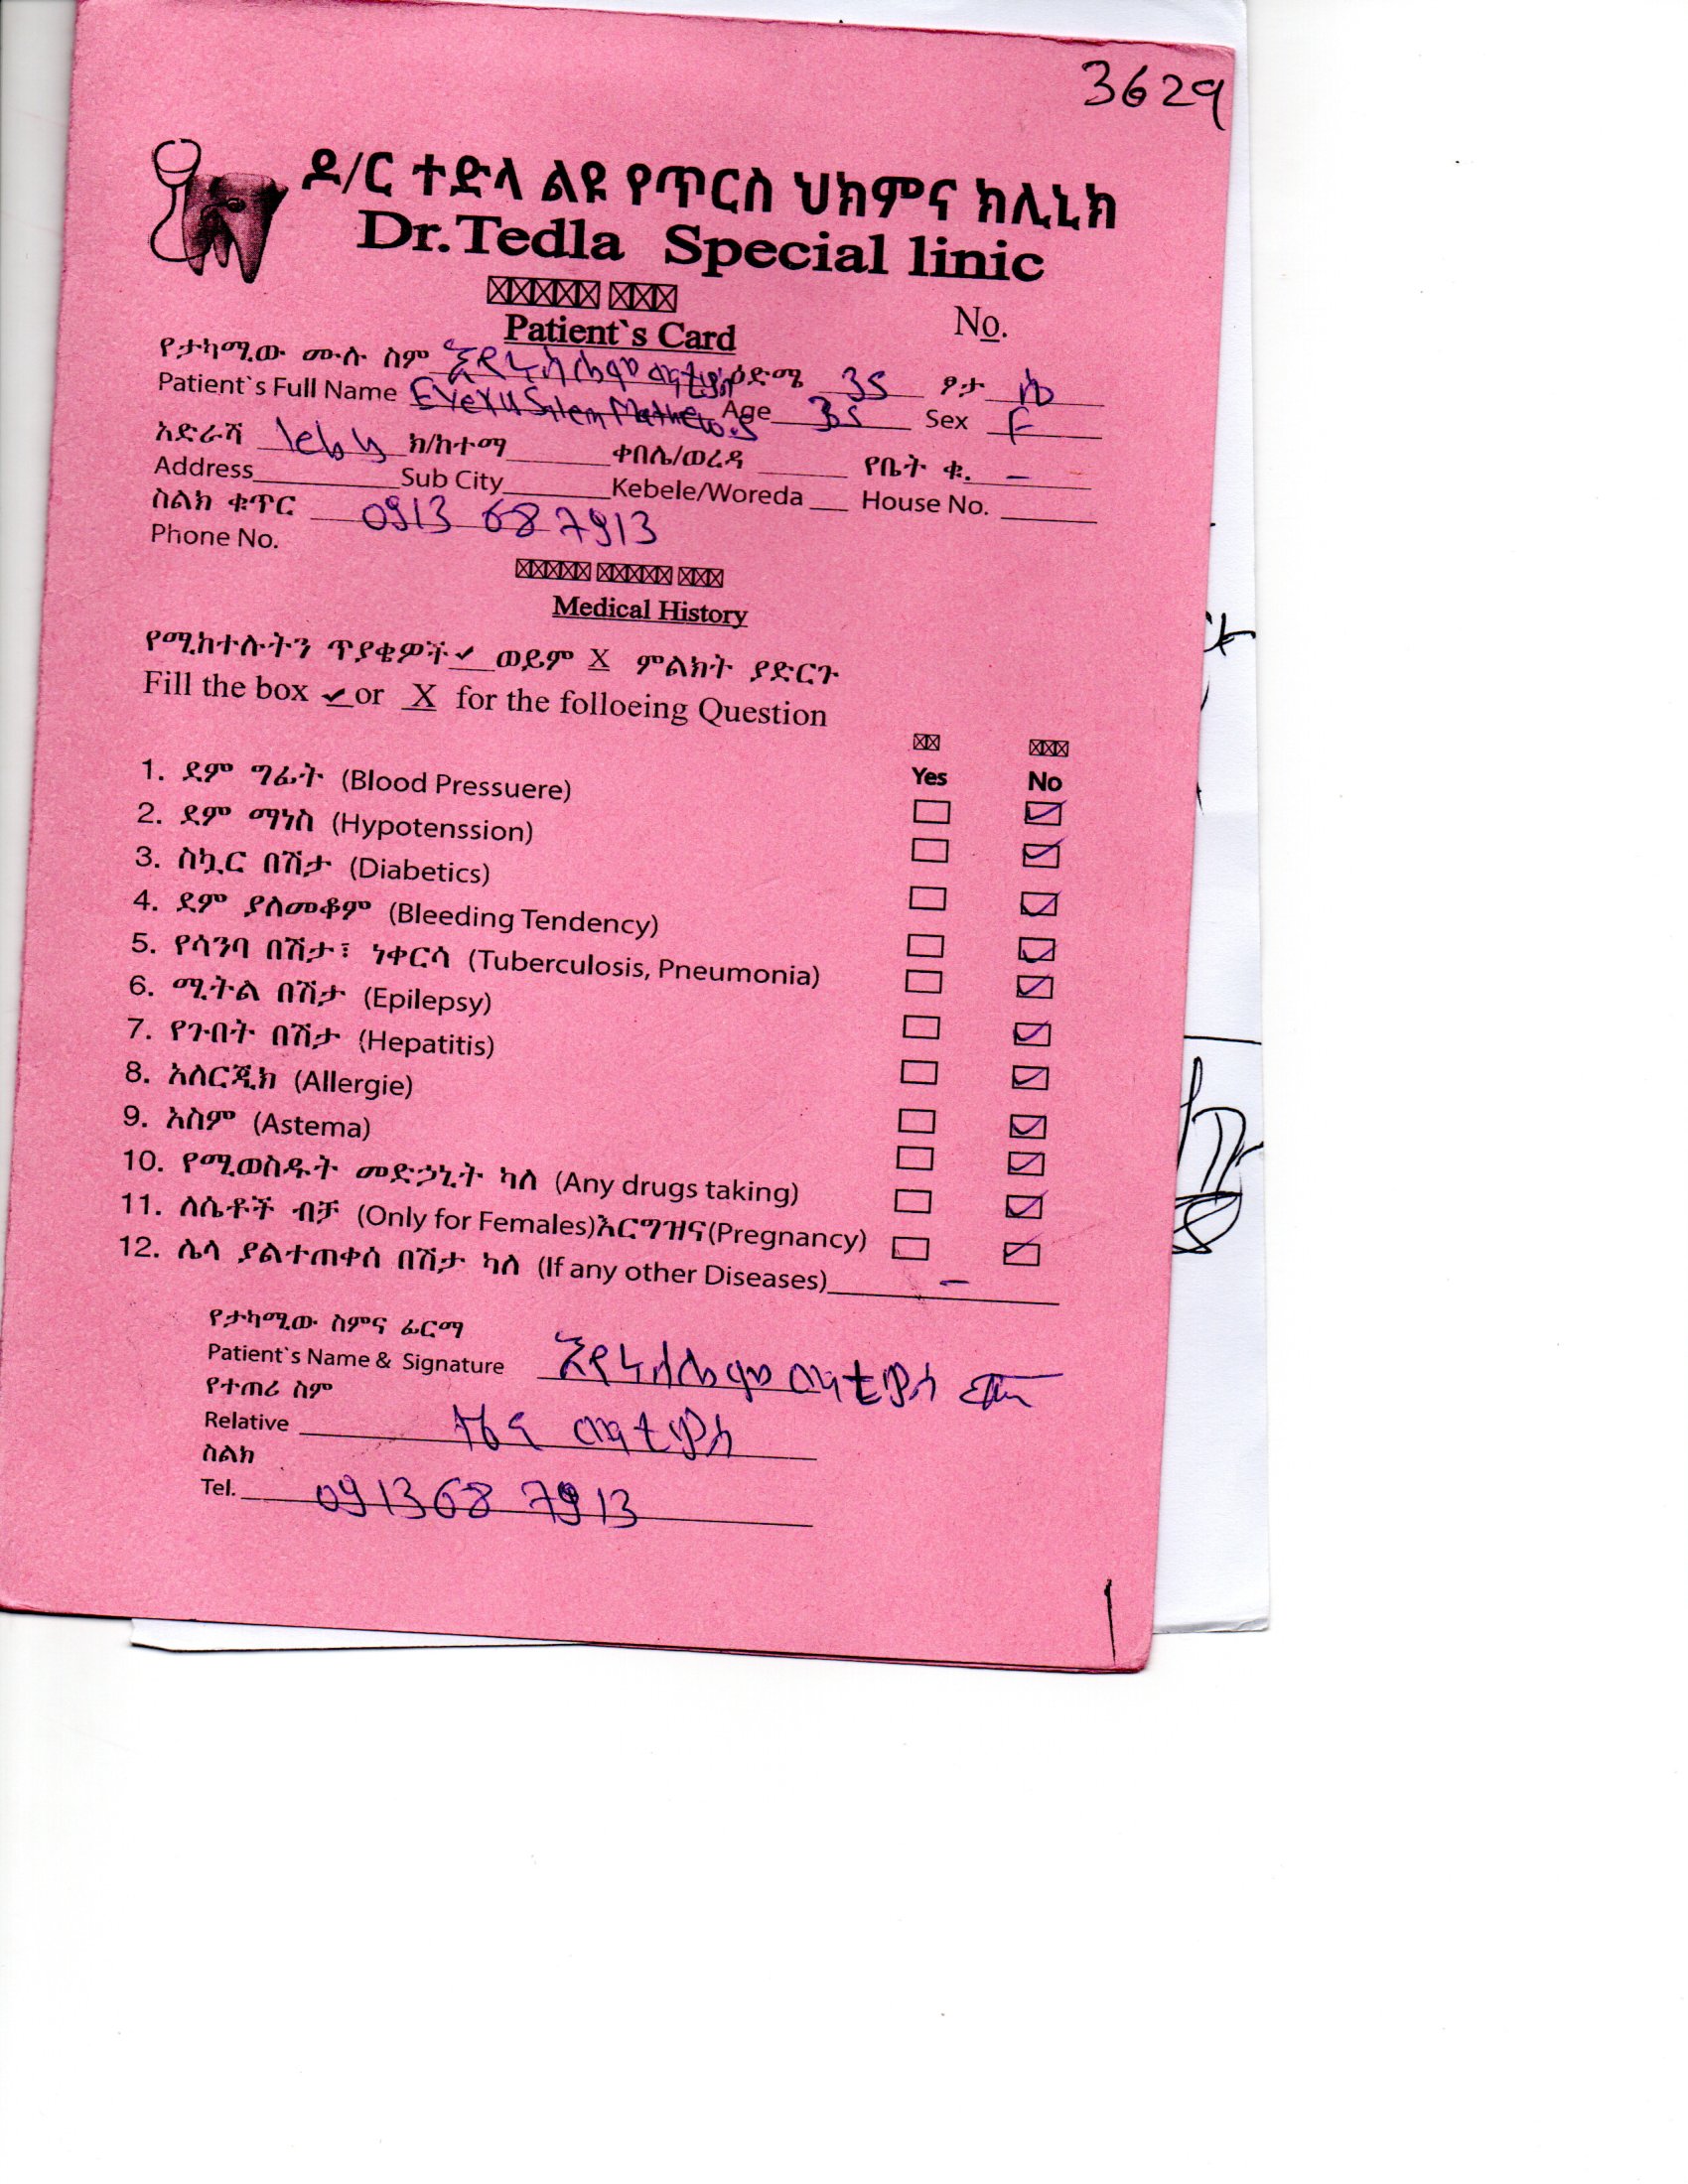 3629
ዶ/ር ተድላ ልዩ የጥርስ ህክምና ክሊኒክ
Dr.Tedla Special linic
Patient`s Card
No.
የታካሚው ሙሉ ስም ዕድሜ 35 ፆታ ሴ
Patient`s Full Name Age 35 Sex F
አድራሻ ክ/ከተማ ቀበሌ/ወረዳ የቤት ቁ. –
Address Sub City Kebele/Woreda House No.
ስልክ ቁጥር 0913 68 7913
Phone No.
Medical History
የሚከተሉትን ጥያቄዎች ✓ ወይም X ምልክት ያድርጉ
Fill the box ✓ or X for the folloeing Question
Yes No
1. ደም ግፊት (Blood Pressuere)
2. ደም ማነስ (Hypotenssion)
3. ስኳር በሽታ (Diabetics)
4. ደም ያለመቆም (Bleeding Tendency)
5. የሳንባ በሽታ፣ ነቀርሳ (Tuberculosis, Pneumonia)
6. ሚትል በሽታ (Epilepsy)
7. የጉበት በሽታ (Hepatitis)
8. አለርጂክ (Allergie)
9. አስም (Astema)
10. የሚወስዱት መድኃኒት ካለ (Any drugs taking)
11. ለሴቶች ብቻ (Only for Females)እርግዝና(Pregnancy)
12. ሌላ ያልተጠቀሰ በሽታ ካለ (If any other Diseases) –
የታካሚው ስምና ፊርማ
Patient`s Name & Signature
የተጠሪ ስም
Relative
ስልክ
Tel. 0913 68 7913